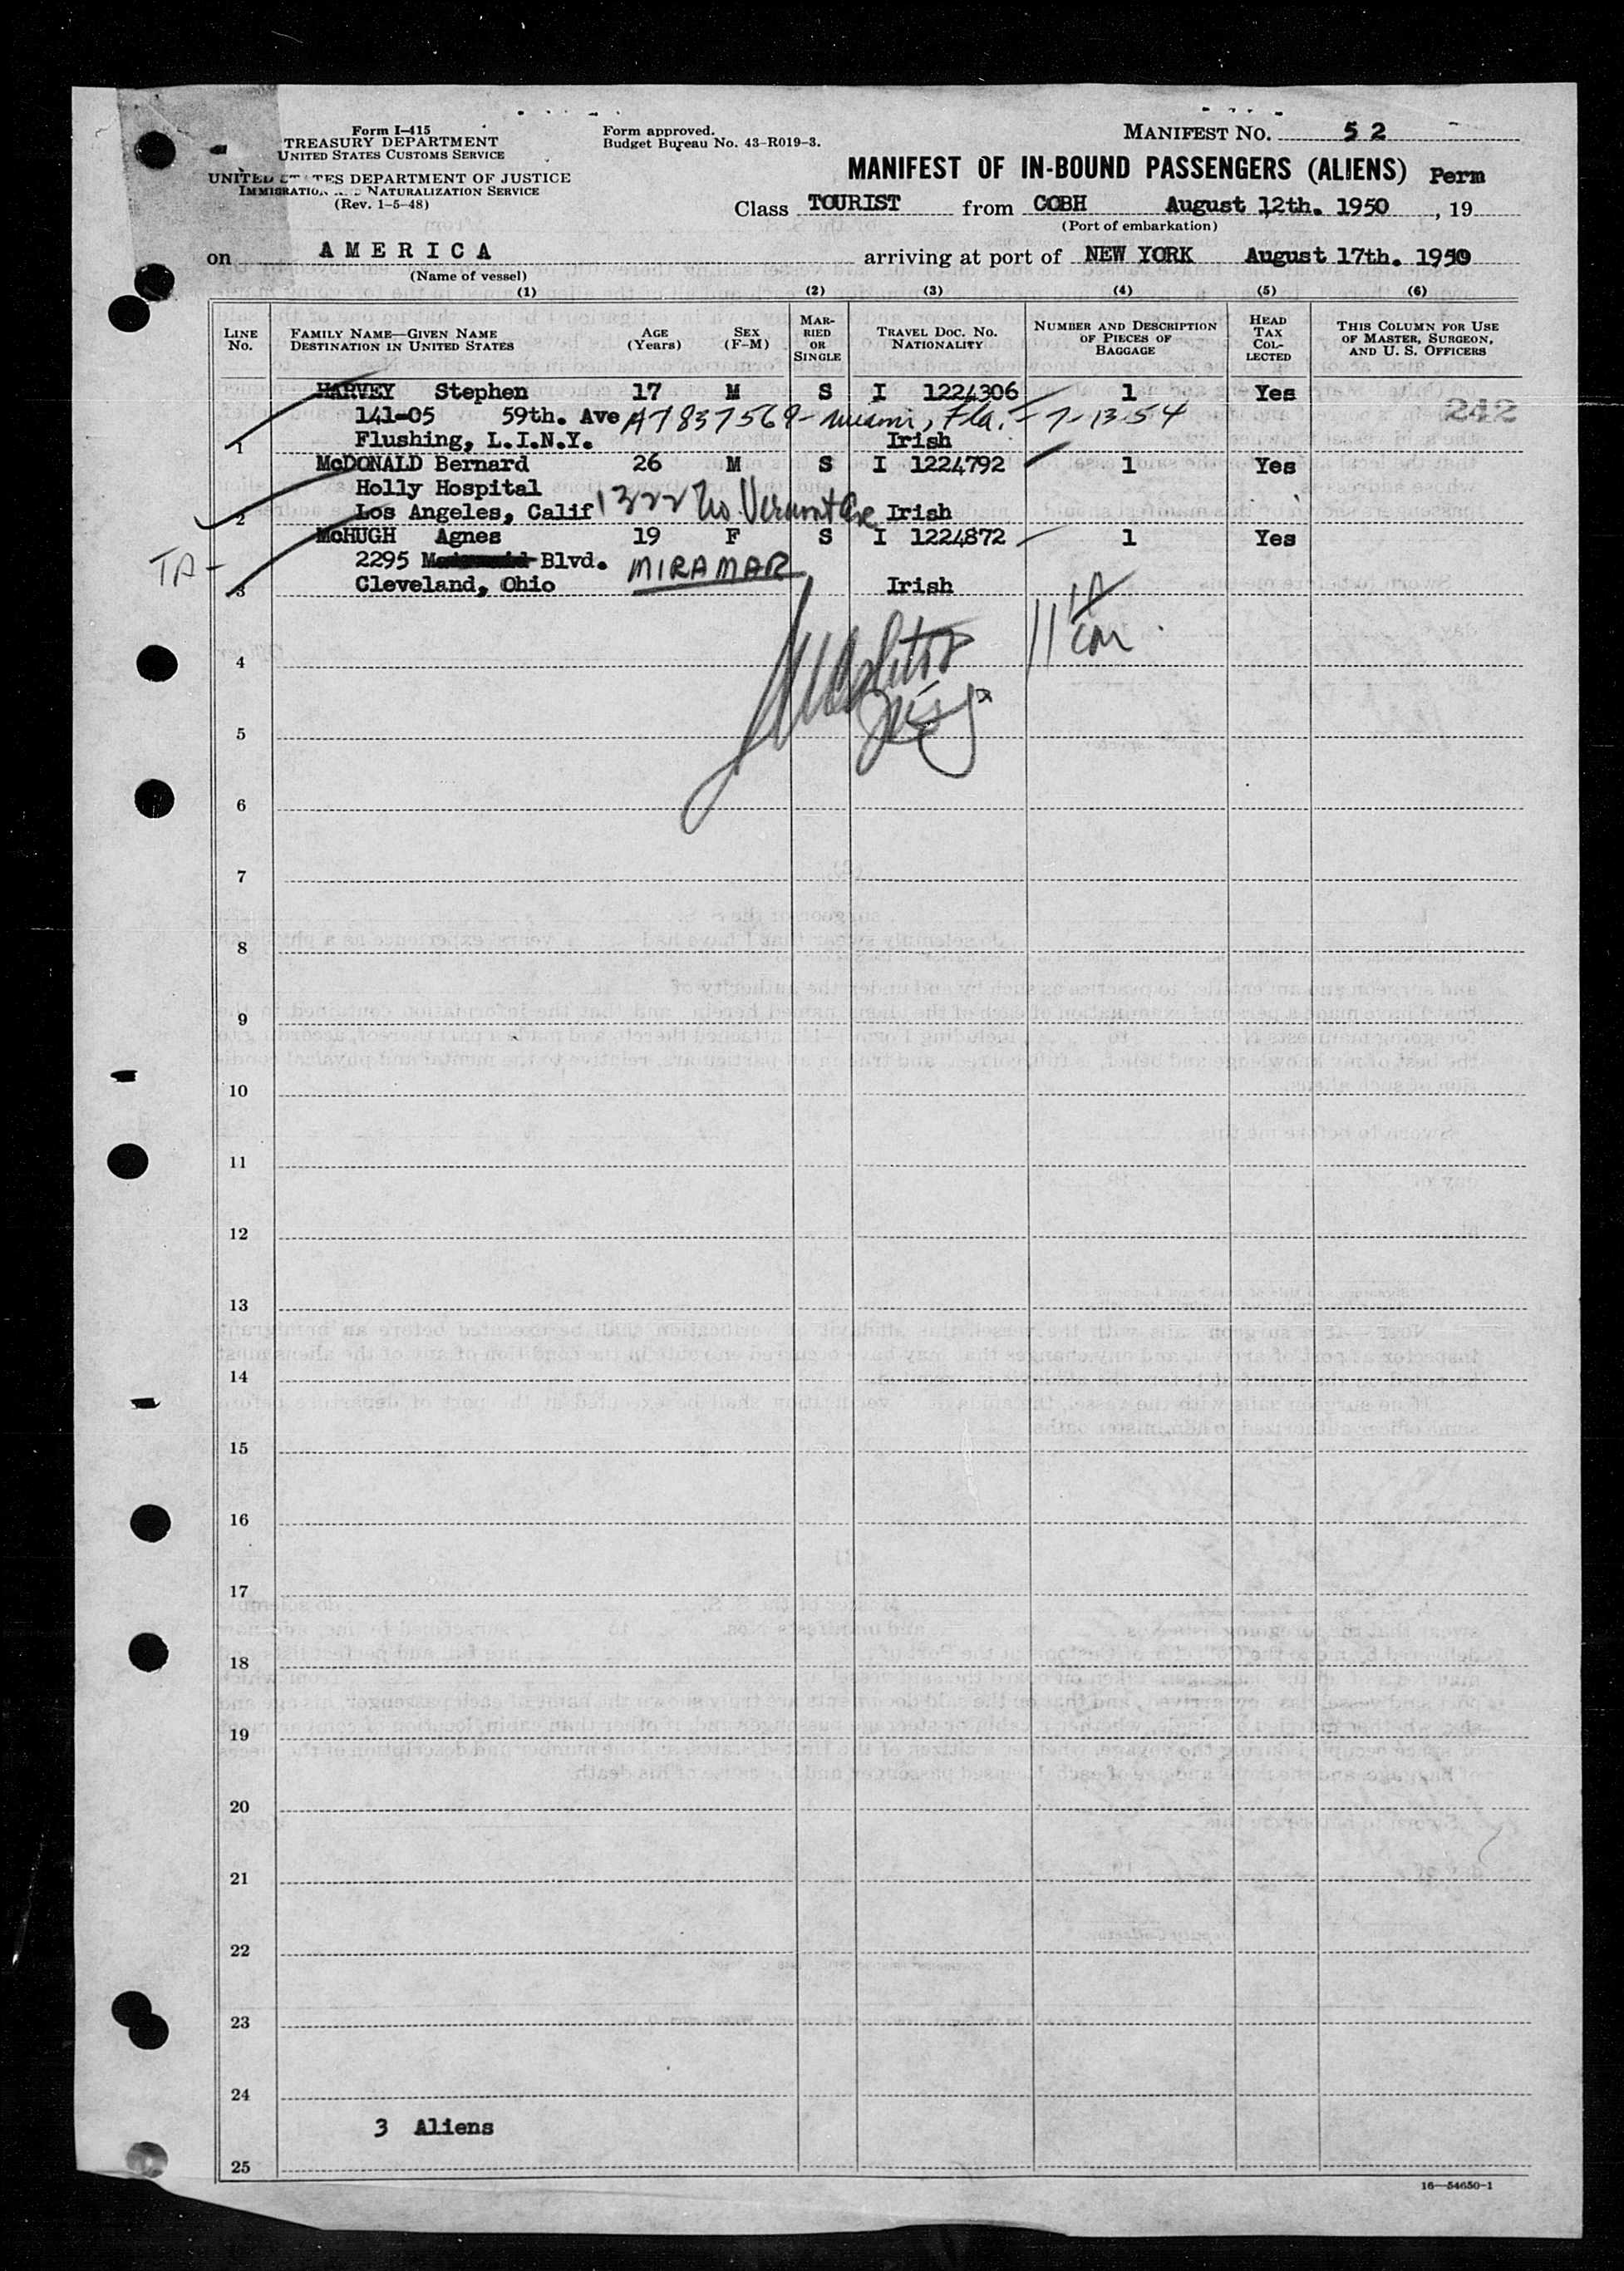 Form I-415
TREASURY DEPARTMENT
UNITED STATES CUSTOMS SERVICE
UNITED STATES DEPARTMENT OF JUSTICE
IMMIGRATION AND NATURALIZATION SERVICE
(Rev. 1-5-48)
Form approved.
Budget Bureau No. 43-R019-3.
MANIFEST NO. 52
MANIFEST OF IN-BOUND PASSENGERS (ALIENS) Perm
Class TOURIST from COBH August 12th. 1950, 19
(Port of embarkation)
on AMERICA arriving at port of NEW YORK August 17th. 1950
(Name of vessel)
(1) (2) (3) (4) (5) (6)
LINE No. FAMILY NAME—GIVEN NAME DESTINATION IN UNITED STATES AGE (Years) SEX (F-M) MARRIED OR SINGLE TRAVEL DOC. NO. NATIONALITY NUMBER AND DESCRIPTION OF PIECES OF BAGGAGE HEAD TAX COLLECTED THIS COLUMN FOR USE OF MASTER, SURGEON, AND U. S. OFFICERS
HARVEY Stephen 17 M S I 1224306 1 Yes
141-05 59th. Ave A7837569 - Miami, Fla. - 7-13-54
1 Flushing, L.I.N.Y. Irish
McDONALD Bernard 26 M S I 1224792 1 Yes
Holly Hospital
2 Los Angeles, Calif 1322 No. Vermont Ave Irish
McHUGH Agnes 19 F S I 1224872 1 Yes
TA- 2295 Blvd. MIRAMAR
3 Cleveland, Ohio Irish
4
5
6
7
8
9
10
11
12
13
14
15
16
17
18
19
20
21
22
23
24
3 Aliens
25
16—54650-1